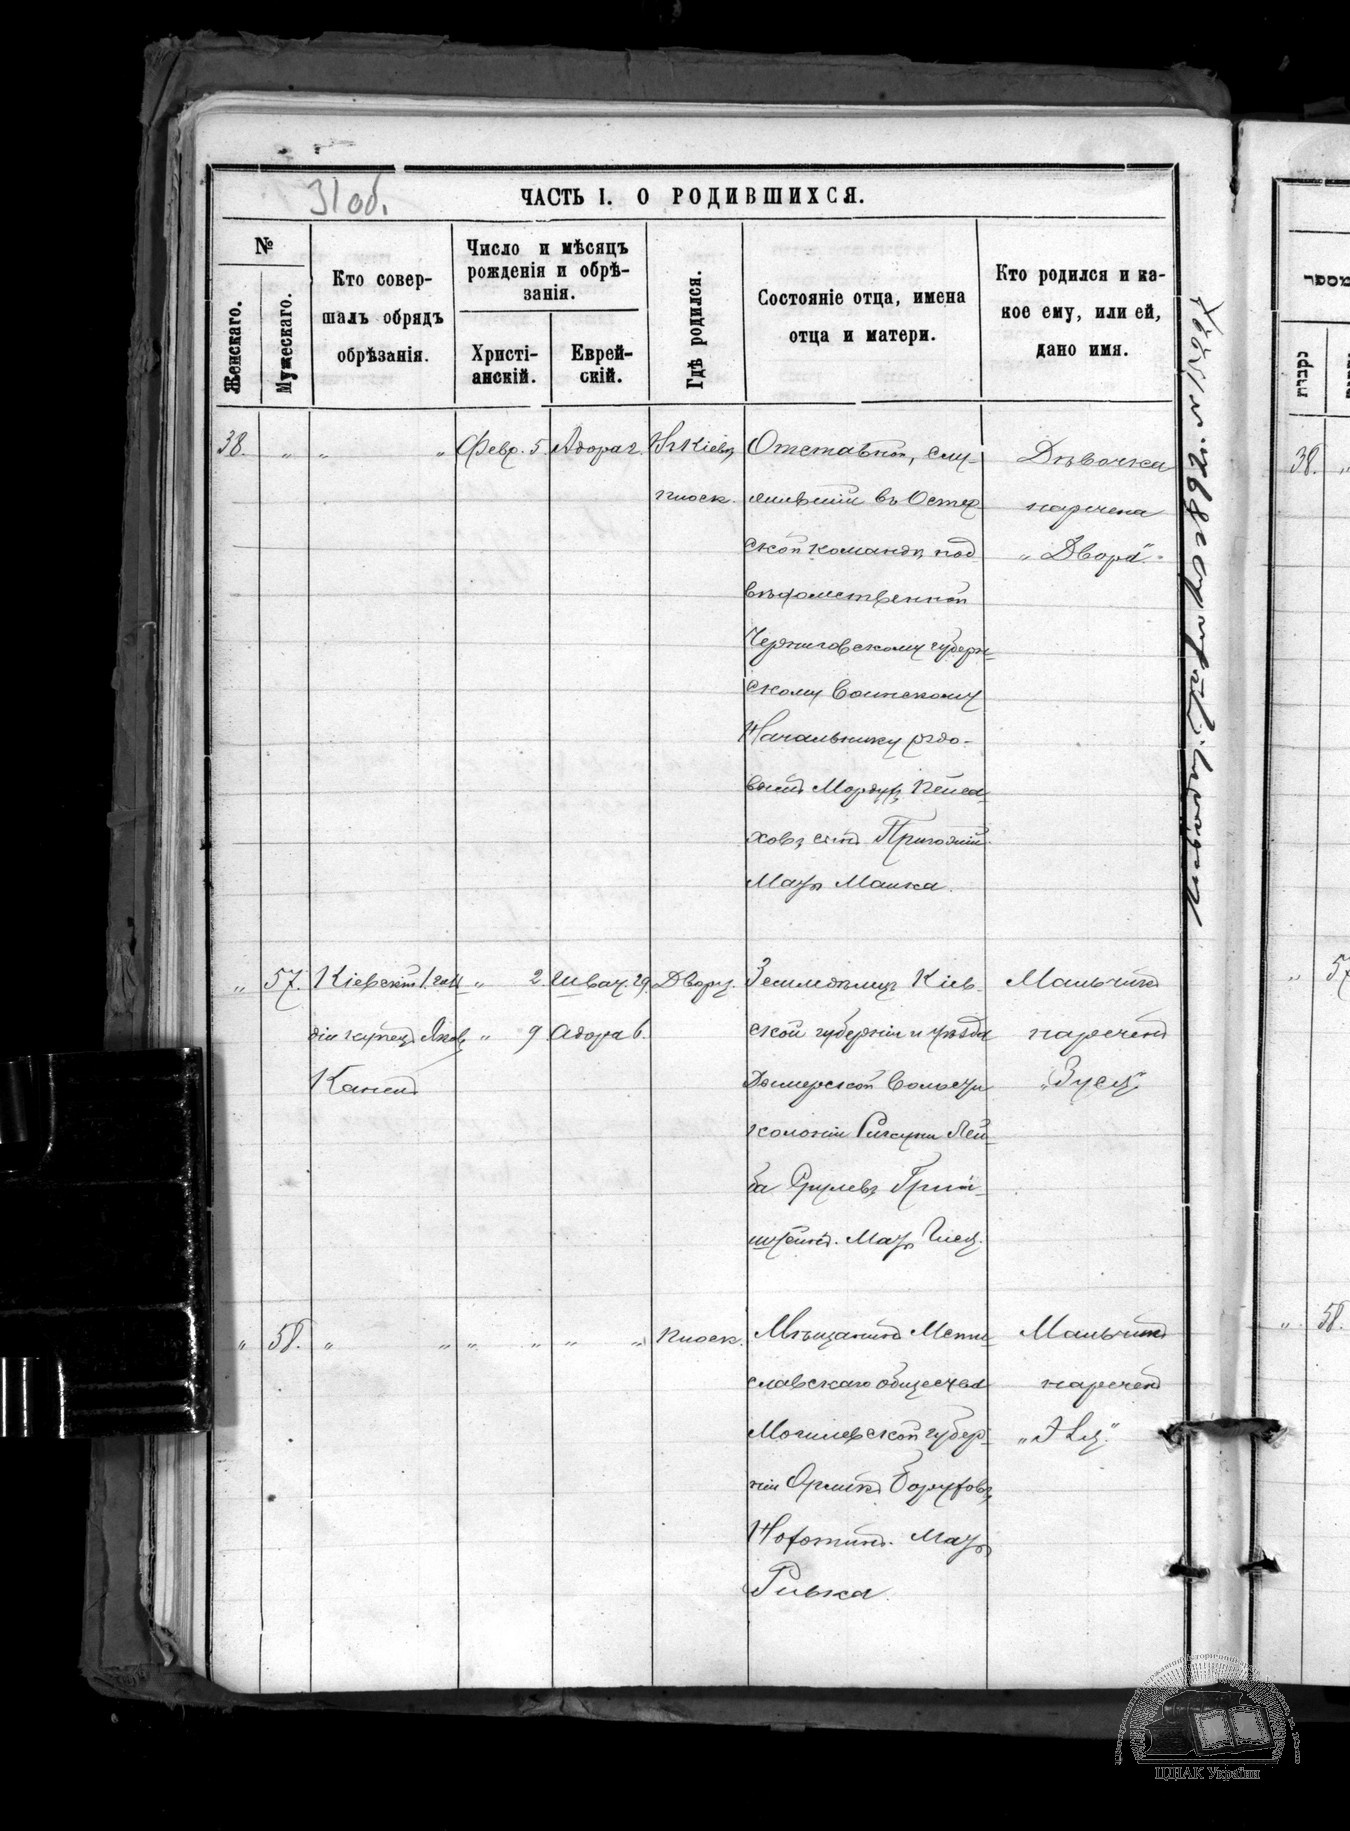 31об.
ЧАСТЬ I. О РОДИВШИХСЯ.
№
Женскаго.
Мужескаго.
Кто совер-
шалъ обрядъ
обрѣзанія.
Число и мѣсяцъ
рожденія и обрѣ-
занія.
Христі-
анскій.
Еврей-
скій.
Гдѣ родился.
Состояніе отца, имена
отца и матери.
Кто родился и ка-
кое ему, или ей,
дано имя.
38. " " " Февр. 5. Адора 2. Кіевъ
плоск.
Отставной, слу-
жившій въ Остер
ской командѣ под
вѣдомственной
Черниговскому губерн-
скому воинскому
Начальнику рядо-
вый Мордухъ Пейса-
ховъ сынъ
Мать Малка.
Дѣвочка
наречена
"Двора".
" 57. Кіевскій 1. гиль
діи купецъ Яковъ
Каненъ
" 2. Шват. 29.
" 9. Адора 6.
Дворц.
Земледѣлецъ Кіев-
ской губерніи и уѣзда
Дымерской волости
колоніи Рикуни Лей-
ба Срулевъ Грин-
штейнъ. Мать
Мальчикъ
нареченъ
"Зусь"
" 58. " " " " " " Плоск.
Мѣщанинъ Мсти-
славскаго общества
Могилевской губер-
ніи Орликъ Боруховъ
Нохоминъ. Мать
Ривка.
Мальчикъ
нареченъ
38.
"
57
" 58.
מספר
נקבות
ЦДІАК України